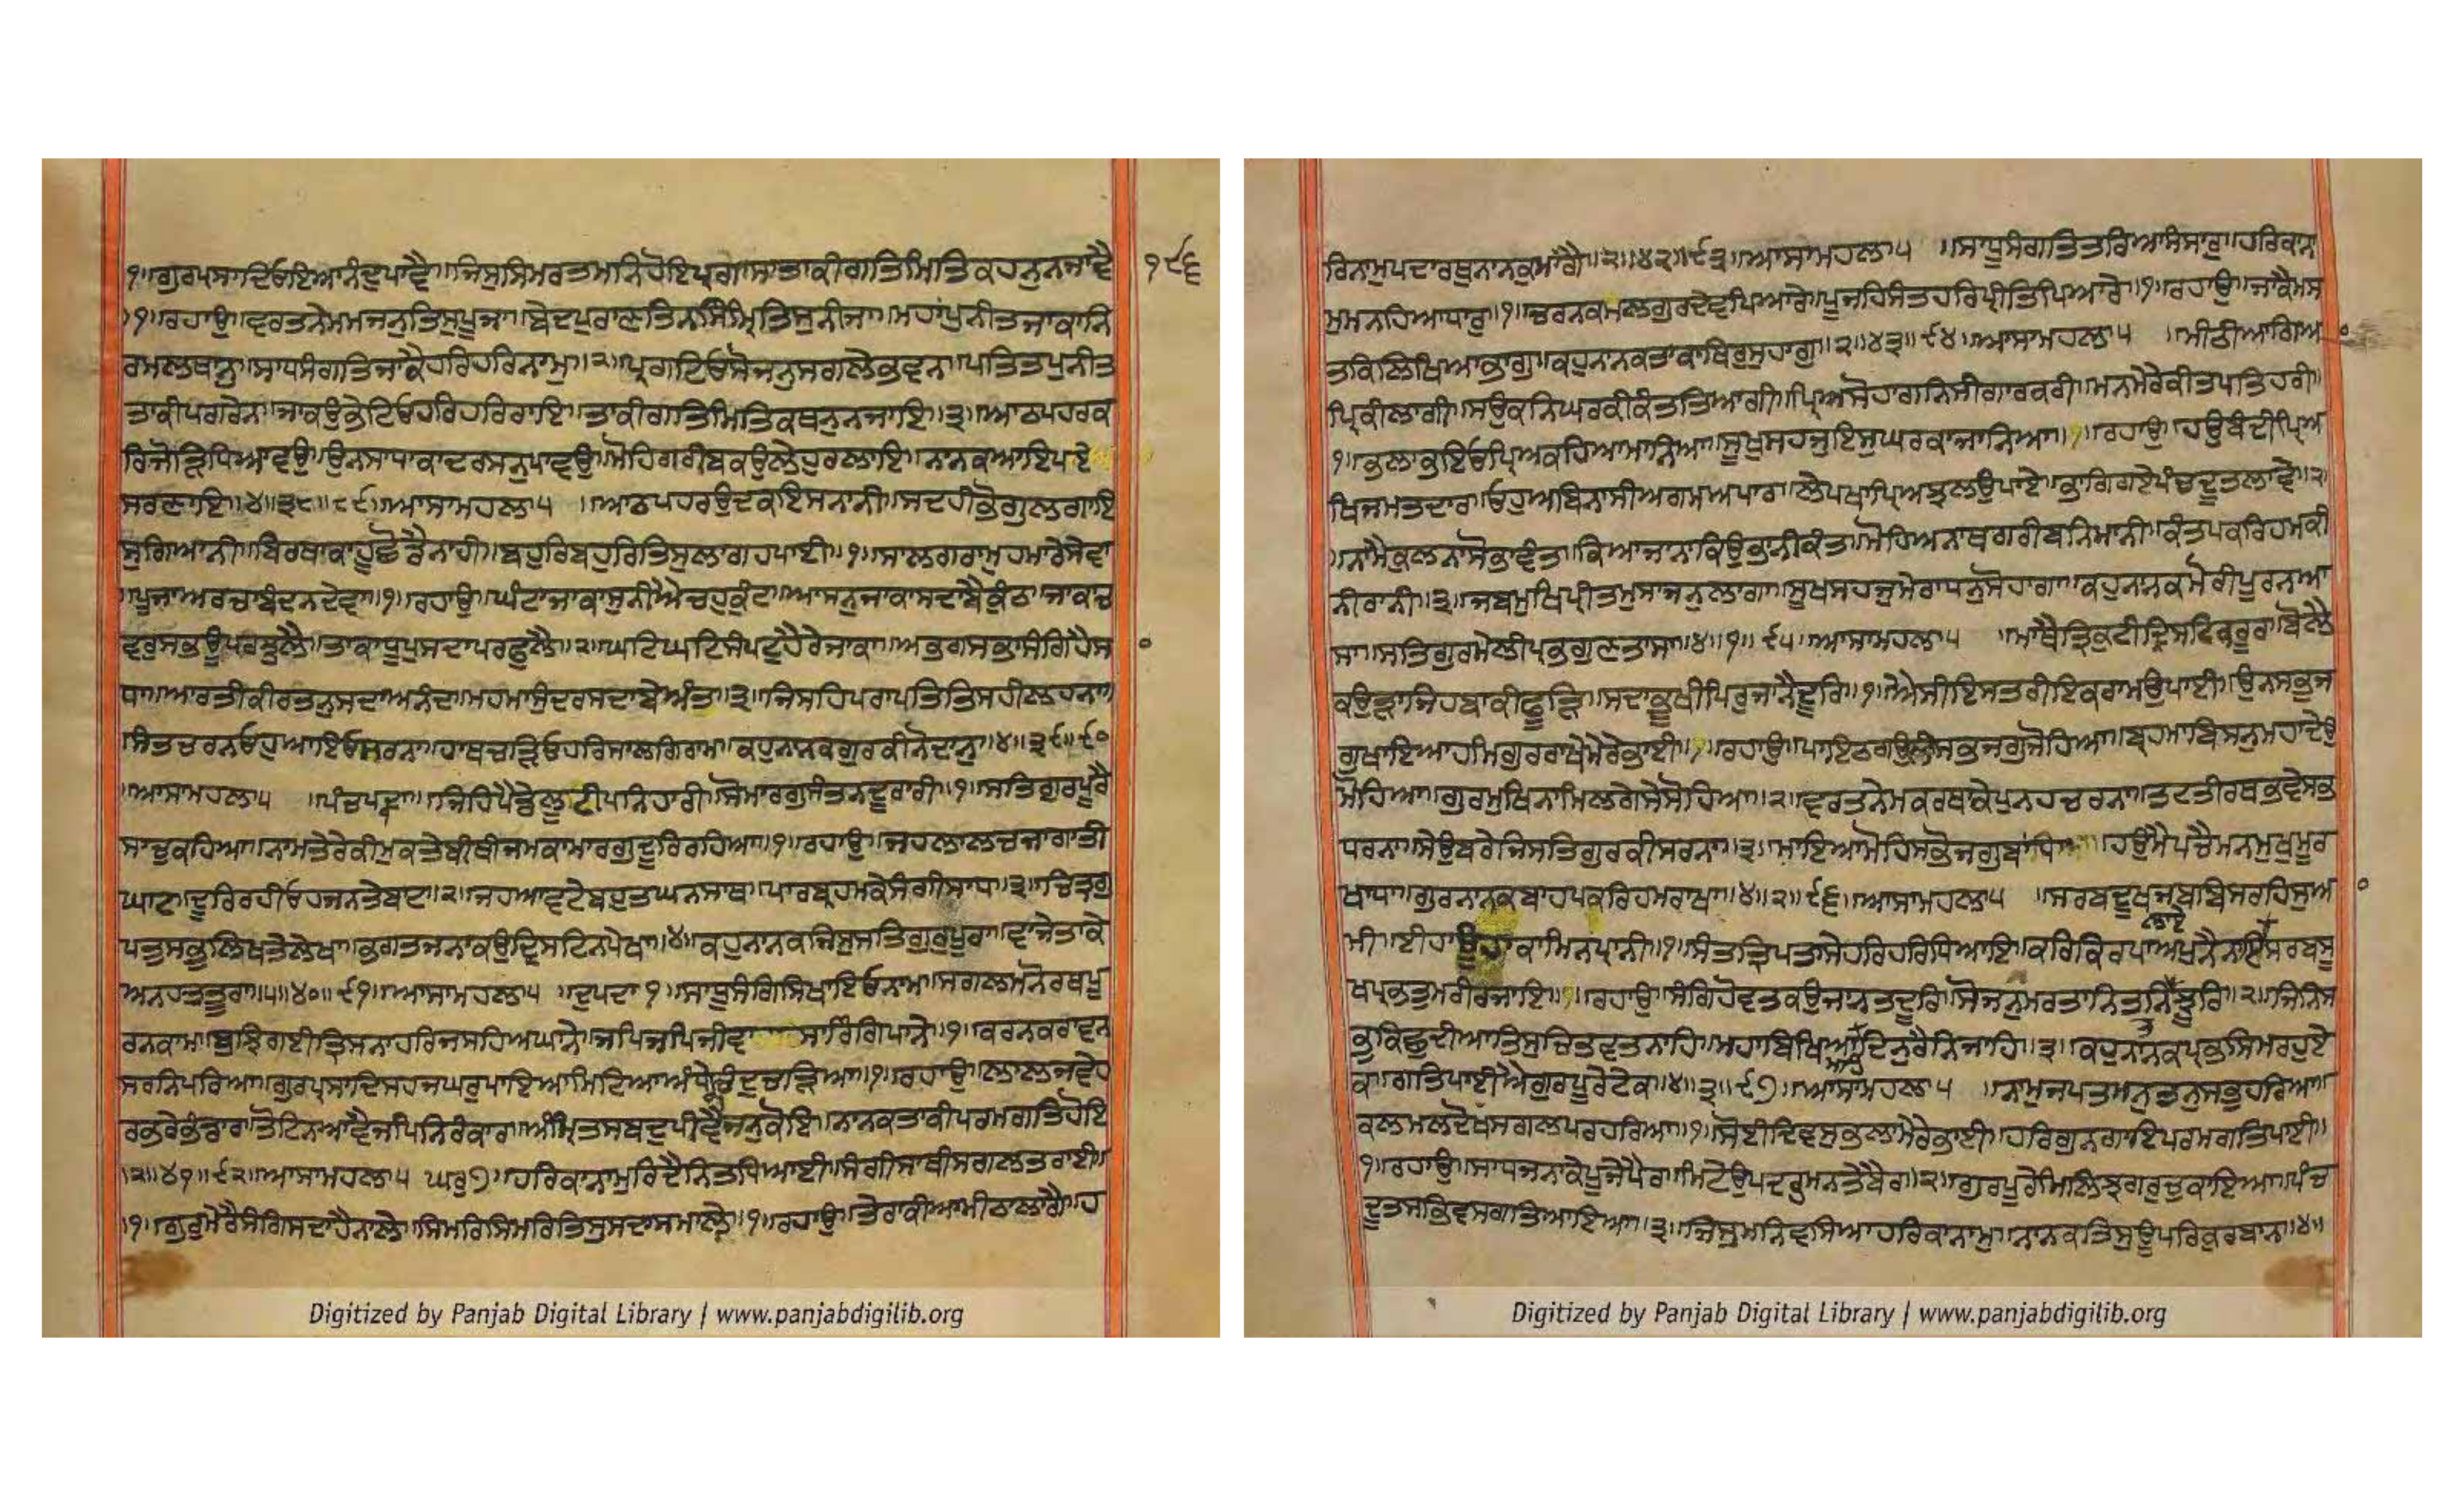 ੧॥ਗੁਰਪ੍ਰਸਾਦਿਓਇਆਨੰਦੁਪਾਵੈ॥ਜਿਸੁਸਿਮਰਤਮਨਿਹੋਇਪ੍ਰਗਾਸਾਤਾਕੀਗਤਿਮਿਤਿਕਹਨੁਨਜਾਵੈ
੧੯੬
॥੧॥ਰਹਾਉ॥ਵਰਤਨੇਮਮਜਨੁਤਿਸੁਪੂਜਾ॥ਬੇਦਪੁਰਾਣਤਿਨਸਿੰਮ੍ਰਿਤਿਸੁਨੀਜਾ॥ਮਹਾਪੁਨੀਤਜਾਕਾਨਿ
ਰਮਲਥਾਨੁ॥ਸਾਧਸੰਗਤਿਜਾਕੈਹਰਿਹਰਿਨਾਮੁ॥੨॥ਪ੍ਰਗਟਿਓਸੋਜਨੁਸਗਲੇਭਵਨ॥ਪਤਿਤਪੁਨੀਤ
ਤਾਕੀਪਗਰੇਨ॥ਜਾਕਉਭੇਟਿਓਹਰਿਹਰਿਰਾਇ॥ਤਾਕੀਗਤਿਮਿਤਿਕਥਨੁਨਜਾਇ॥੩॥ਆਠਪਹਰਕ
ਰਿਜੋੜਿਧਿਆਵਉ॥ਉਨਸਾਧਾਕਾਦਰਸਨੁਪਾਵਉ॥ਮੋਹਿਗਰੀਬਕਉਲੇਹੁਰਲਾਇ॥ਨਾਨਕਆਇਪਏ
ਸਰਣਾਇ॥੪॥੩੮॥੮੯॥ਆਸਾਮਹਲਾ੫ ॥ਆਠਪਹਰਉਦਕਇਸਨਾਨੀ॥ਸਦਹੀਭੋਗੁਲਗਾਇ
ਸੁਗਿਆਨੀ॥ਬਿਰਥਾਕਾਹੂਛੋਡੈਨਾਹੀ॥ਬਹੁਰਿਬਹੁਰਿਤਿਸੁਲਾਗਹਪਾਈ॥੧॥ਸਾਲਗਰਾਮੁਹਮਾਰੈਸੇਵਾ
॥ਪੂਜਾਅਰਚਾਬੰਦਨਦੇਵਾ॥੧॥ਰਹਾਉ॥ਘੰਟਾਜਾਕਾਸੁਨੀਐਚਹੁਕੁੰਟਾ॥ਆਸਨੁਜਾਕਾਸਦਾਬੈਕੁੰਠਾ॥ਜਾਕਾਚ
ਵਰੁਸਭਊਪਰਝੂਲੈ॥ਤਾਕਾਧੂਪੁਸਦਾਪਰਫੁਲੈ॥੨॥ਘਟਿਘਟਿਸੰਪਟੁਹੈਰੇਜਾਕਾ॥ਅਭਗਸਭਾਸੰਗਿਹੈਸ
ਧਾ॥ਆਰਤੀਕੀਰਤਨੁਸਦਾਅਨੰਦਾ॥ਮਹਮਾਸੁੰਦਰਸਦਾਬੇਅੰਤਾ॥੩॥ਜਿਸਹਿਪਰਾਪਤਿਤਿਸਹੀਲਹਨਾ॥
ਸੰਤਚਰਨਓਹੁਆਇਓਸਰਨਾ॥ਹਾਥਚੜਿਓਹਰਿਸਾਲਗਿਰਾਮਾ॥ਕਹੁਨਾਨਕਗੁਰਕੀਨੋਦਾਨੁ॥੪॥੩੯॥੯੦
॥ਆਸਾਮਹਲਾ੫ ॥ਪੰਚਪਦਾ॥ਜਿਹਿਪੈਡੈਲੂਟੀਪਨਿਹਾਰੀ॥ਸੋਮਾਰਗੁਸੰਤਨਦੂਰਾਰੀ॥੧॥ਸਤਿਗੁਰਪੂਰੈ
ਸਾਚੁਕਹਿਆ॥ਨਾਮਤੇਰੇਕੀਮੁਕਤੇਬੀਥੀਜਮਕਾਮਾਰਗੁਦੂਰਿਰਹਿਆ॥੧॥ਰਹਾਉ॥ਜਹਲਾਲਚਜਾਗਾਤੀ
ਘਾਟ॥ਦੂਰਿਰਹੀਓਹਜਨਤੇਬਾਟ॥੨॥ਜਹਆਵਟੇਬਹੁਤਘਨਸਾਥ॥ਪਾਰਬ੍ਰਹਮਕੇਸੰਗੀਸਾਧ॥੩॥ਚਿਤ੍ਰਗੁ
ਪਤੁਸਭੁਲਿਖਤੇਲੇਖਾ॥ਭਗਤਜਨਾਕਉਦ੍ਰਿਸਟਿਨਪੇਖਾ॥੪॥ਕਹੁਨਾਨਕਜਿਸੁਸਤਿਗੁਰੁਪੂਰਾ॥ਵਾਜੇਤਾਕੇ
ਅਨਹਤਤੂਰਾ॥੫॥੪੦॥੯੧॥ਆਸਾਮਹਲਾ੫ ਦੁਪਦਾ੧॥ਸਾਧੂਸੰਗਿਸਿਖਾਇਓਨਾਮੁ॥ਸਗਲਮਨੋਰਥਪੂ
ਰਨਕਾਮ॥ਬੁਝਿਗਈਤ੍ਰਿਸਨਾਹਰਿਜਸਹਿਅਘਾਨੇ॥ਜਪਿਜਪਿਜੀਵਾ ਸਾਰਿੰਗਪਾਨੇ॥੧॥ਕਰਨਕਰਾਵਨ
ਸਰਨਿਪਰਿਆ॥ਗੁਰਪ੍ਰਸਾਦਿਸਹਜਘਰੁਪਾਇਆਮਿਟਿਆਅੰਧੇਰਾਚੰਦੁਚੜਿਆ॥੧॥ਰਹਾਉ॥ਲਾਲਜਵੇਹ
ਰਭਰੇਭੰਡਾਰ॥ਤੋਟਿਨਆਵੈਜਪਿਨਿਰੰਕਾਰ॥ਅੰਮ੍ਰਿਤਸਬਦੁਪੀਵੈਜਨੁਕੋਇ॥ਨਾਨਕਤਾਕੀਪਰਮਗਤਿਹੋਇ
॥੨॥੪੧॥੯੨॥ਆਸਾਮਹਲਾ੫ ਘਰੁ੭॥ਹਰਿਕਾਨਾਮੁਰਿਦੈਨਿਤਧਿਆਈ॥ਸੰਗੀਸਾਥੀਸਗਲਤਰਾਈ॥
॥੧॥ਗੁਰੁਮੇਰੈਸੰਗਿਸਦਾਹੈਨਾਲੇ॥ਸਿਮਰਿਸਿਮਰਿਤਿਸੁਸਦਾਸਮਾਲੇ॥੧॥ਰਹਾਉ॥ਤੇਰਾਕੀਆਮੀਠਾਲਾਗੈ॥ਹ
Digitized by Panjab Digital Library | www.panjabdigilib.org
ਰਿਨਾਮੁਪਦਾਰਥੁਨਾਨਕੁਮਾਂਗੈ॥੨॥੪੨॥੯੩॥ਆਸਾਮਹਲਾ੫ ॥ਸਾਧੂਸੰਗਤਿਤਰਿਆਸੰਸਾਰੁ॥ਹਰਿਕਾਨਾ
ਮੁਮਨਹਿਆਧਾਰੁ॥੧॥ਚਰਨਕਮਲਗੁਰਦੇਵਪਿਆਰੇ॥ਪੂਜਹਿਸੰਤਹਰਿਪ੍ਰੀਤਿਪਿਆਰੇ॥੧॥ਰਹਾਉ॥ਜਾਕੈਮਸ
ਤਕਿਲਿਖਿਆਭਾਗੁ॥ਕਹੁਨਾਨਕਤਾਕਾਥਿਰੁਸੁਹਾਗੁ॥੨॥੪੩॥੯੪॥ਆਸਾਮਹਲਾ੫ ॥ਮੀਠੀਆਗਿਆ
ਪ੍ਰਿਕੀਲਾਗੀ॥ਸਉਕਨਿਘਰਕੀਕੰਤਤਿਆਗੀ॥ਪ੍ਰਿਅਸੋਹਾਗਨਿਸੀਗਾਰਕਰੀ॥ਮਨਮੇਰੇਕੀਤਪਤਿਹਰੀ॥
੧॥ਭਲਾਭਇਓਪ੍ਰਿਅਕਹਿਆਮਾਨਿਆ॥ਸੂਖੁਸਹਜੁਇਸੁਘਰਕਾਜਾਨਿਆ॥੧॥ਰਹਾਉ॥ਹਉਬੰਦੀਪ੍ਰਿਅ
ਖਿਜਮਤਦਾਰ॥ਓਹੁਅਬਿਨਾਸੀਅਗਮਅਪਾਰ॥ਲੇਪਖਾਪ੍ਰਿਅਝਲਉਪਾਏ॥ਭਾਗਿਗਏਪੰਚਦੂਤਲਾਵੇ॥੨
॥ਨਾਮੈਕੁਲਨਾਸੋਭਾਵੰਤ॥ਕਿਆਜਾਨਾਕਿਉਭਾਨੀਕੰਤ॥ਮੋਹਿਅਨਾਥਗਰੀਬਨਿਮਾਨੀ॥ਕੰਤਪਕਰਿਹਮਕੀ
ਨੀਰਾਨੀ॥੩॥ਜਬਮੁਖਿਪ੍ਰੀਤਮੁਸਾਜਨੁਲਾਗਾ॥ਸੂਖਸਹਜੁਮੇਰਾਧਨੁਸੋਹਾਗਾ॥ਕਹੁਨਾਨਕਮੋਰੀਪੂਰਨਆ
ਸਾ॥ਸਤਿਗੁਰਮੇਲੀਪ੍ਰਭਗੁਣਤਾਸਾ॥੪॥੧॥੯੫॥ਆਸਾਮਹਲਾ੫ ॥ਮਾਥੈਤ੍ਰਿਕੁਟੀਦ੍ਰਿਸਟਿਕਰੂਰਾ॥ਬੋਲੈ
ਕਉੜਾਜਿਹਬਾਕੀਫੂੜਿ॥ਸਦਾਭੂਖੀਪਿਰੁਜਾਨੈਦੂਰਿ॥੧॥ਐਸੀਇਸਤਰੀਇਕਰਾਮਉਪਾਈ॥ਉਨਸਭੁਜ
ਗੁਖਾਇਆਹਮਗੁਰਰਾਖੇਮੇਰੇਭਾਈ॥੧॥ਰਹਾਉ॥ਪਾਇਠਗਉਲੀਸਭਜਗੁਜੋਹਿਆ॥ਬ੍ਰਹਮਾਬਿਸਨੁਮਹਾਦੇਉ
ਮੋਹਿਆ॥ਗੁਰਮੁਖਿਨਾਮਿਲਗੇਸੇਸੋਹਿਆ॥੨॥ਵਰਤਨੇਮਕਰਥਾਕੇਪੁਨਹਚਰਨਾ॥ਤਟਤੀਰਥਭਵੇਸਭ
ਧਰਨਾ॥ਸੇਉਬਰੇਜਿਸਤਿਗੁਰਕੀਸਰਨਾ॥੩॥ਮਾਇਆਮੋਹਿਸਭੋਜਗੁਬਾਧਾ॥ਹਉਮੈਪਚੈਮਨਮੁਖਮੂਰ
ਖਾਧਾ॥ਗੁਰਨਾਨਕਬਾਹਪਕਰਿਹਮਰਾਖਾ॥੪॥੨॥੯੬॥ਆਸਾਮਹਲਾ੫ ॥ਸਰਬਦੂਖਜਬਬਿਸਰਹਿਸੁਆ
ਮੀ॥ਈਹਾਊਹਾਕਾਮਿਨਪ੍ਰਾਨੀ॥੧॥ਸੰਤਤ੍ਰਿਪਤਾਸੇਹਰਿਹਰਿਧਿਆਇ॥ਕਰਿਕਿਰਪਾਅਪੁਨੈਨਾਇਸਰਬਸੂ
ਖਪ੍ਰਭਤੁਮਰੀਰਜਾਇ॥੧॥ਰਹਾਉ॥ਸੰਗਿਹੋਵਤਕਉਜਾਨਤਦੂਰਿ॥ਸੋਜਨੁਮਰਤਾਨਿਤਨਿਝੂਰਿ॥੨॥ਜਿਨਿਸ
ਭੁਕਿਛੁਦੀਆਤਿਸੁਚਿਤਵਤਨਾਹਿ॥ਮਹਾਬਿਖਿਆਦਿਨੁਰੈਨਿਜਾਹਿ॥੩॥ਕਹੁਨਾਨਕਪ੍ਰਭੁਸਿਮਰਹੁਏ
ਕ॥ਗਤਿਪਾਈਐਗੁਰਪੂਰੇਟੇਕ॥੪॥੩॥੯੭॥ਆਸਾਮਹਲਾ੫ ॥ਨਾਮੁਜਪਤਮਨੁਤਨੁਸਭੁਹਰਿਆ॥
ਕਲਮਲਦੋਖਸਗਲਪਰਹਰਿਆ॥੧॥ਸੋਈਦਿਵਸੁਭਲਾਮੇਰੇਭਾਈ॥ਹਰਿਗੁਨਗਾਇਪਰਮਗਤਿਪਾਈ॥
੧॥ਰਹਾਉ॥ਸਾਧਜਨਾਕੇਪੂਜੇਪੈਰ॥ਮਿਟੇਉਪਦ੍ਰਵਮਨਤੇਬੈਰ॥੨॥ਗੁਰਪੂਰੇਮਿਲਿਝਗਰੁਚੁਕਾਇਆ॥ਪੰਚ
ਦੂਤਸਭਿਵਸਗਤਿਆਇਆ॥੩॥ਜਿਸੁਮਨਿਵਸਿਆਹਰਿਕਾਨਾਮੁ॥ਨਾਨਕਤਿਸੁਊਪਰਿਕੁਰਬਾਨ॥੪॥
Digitized by Panjab Digital Library | www.panjabdigilib.org